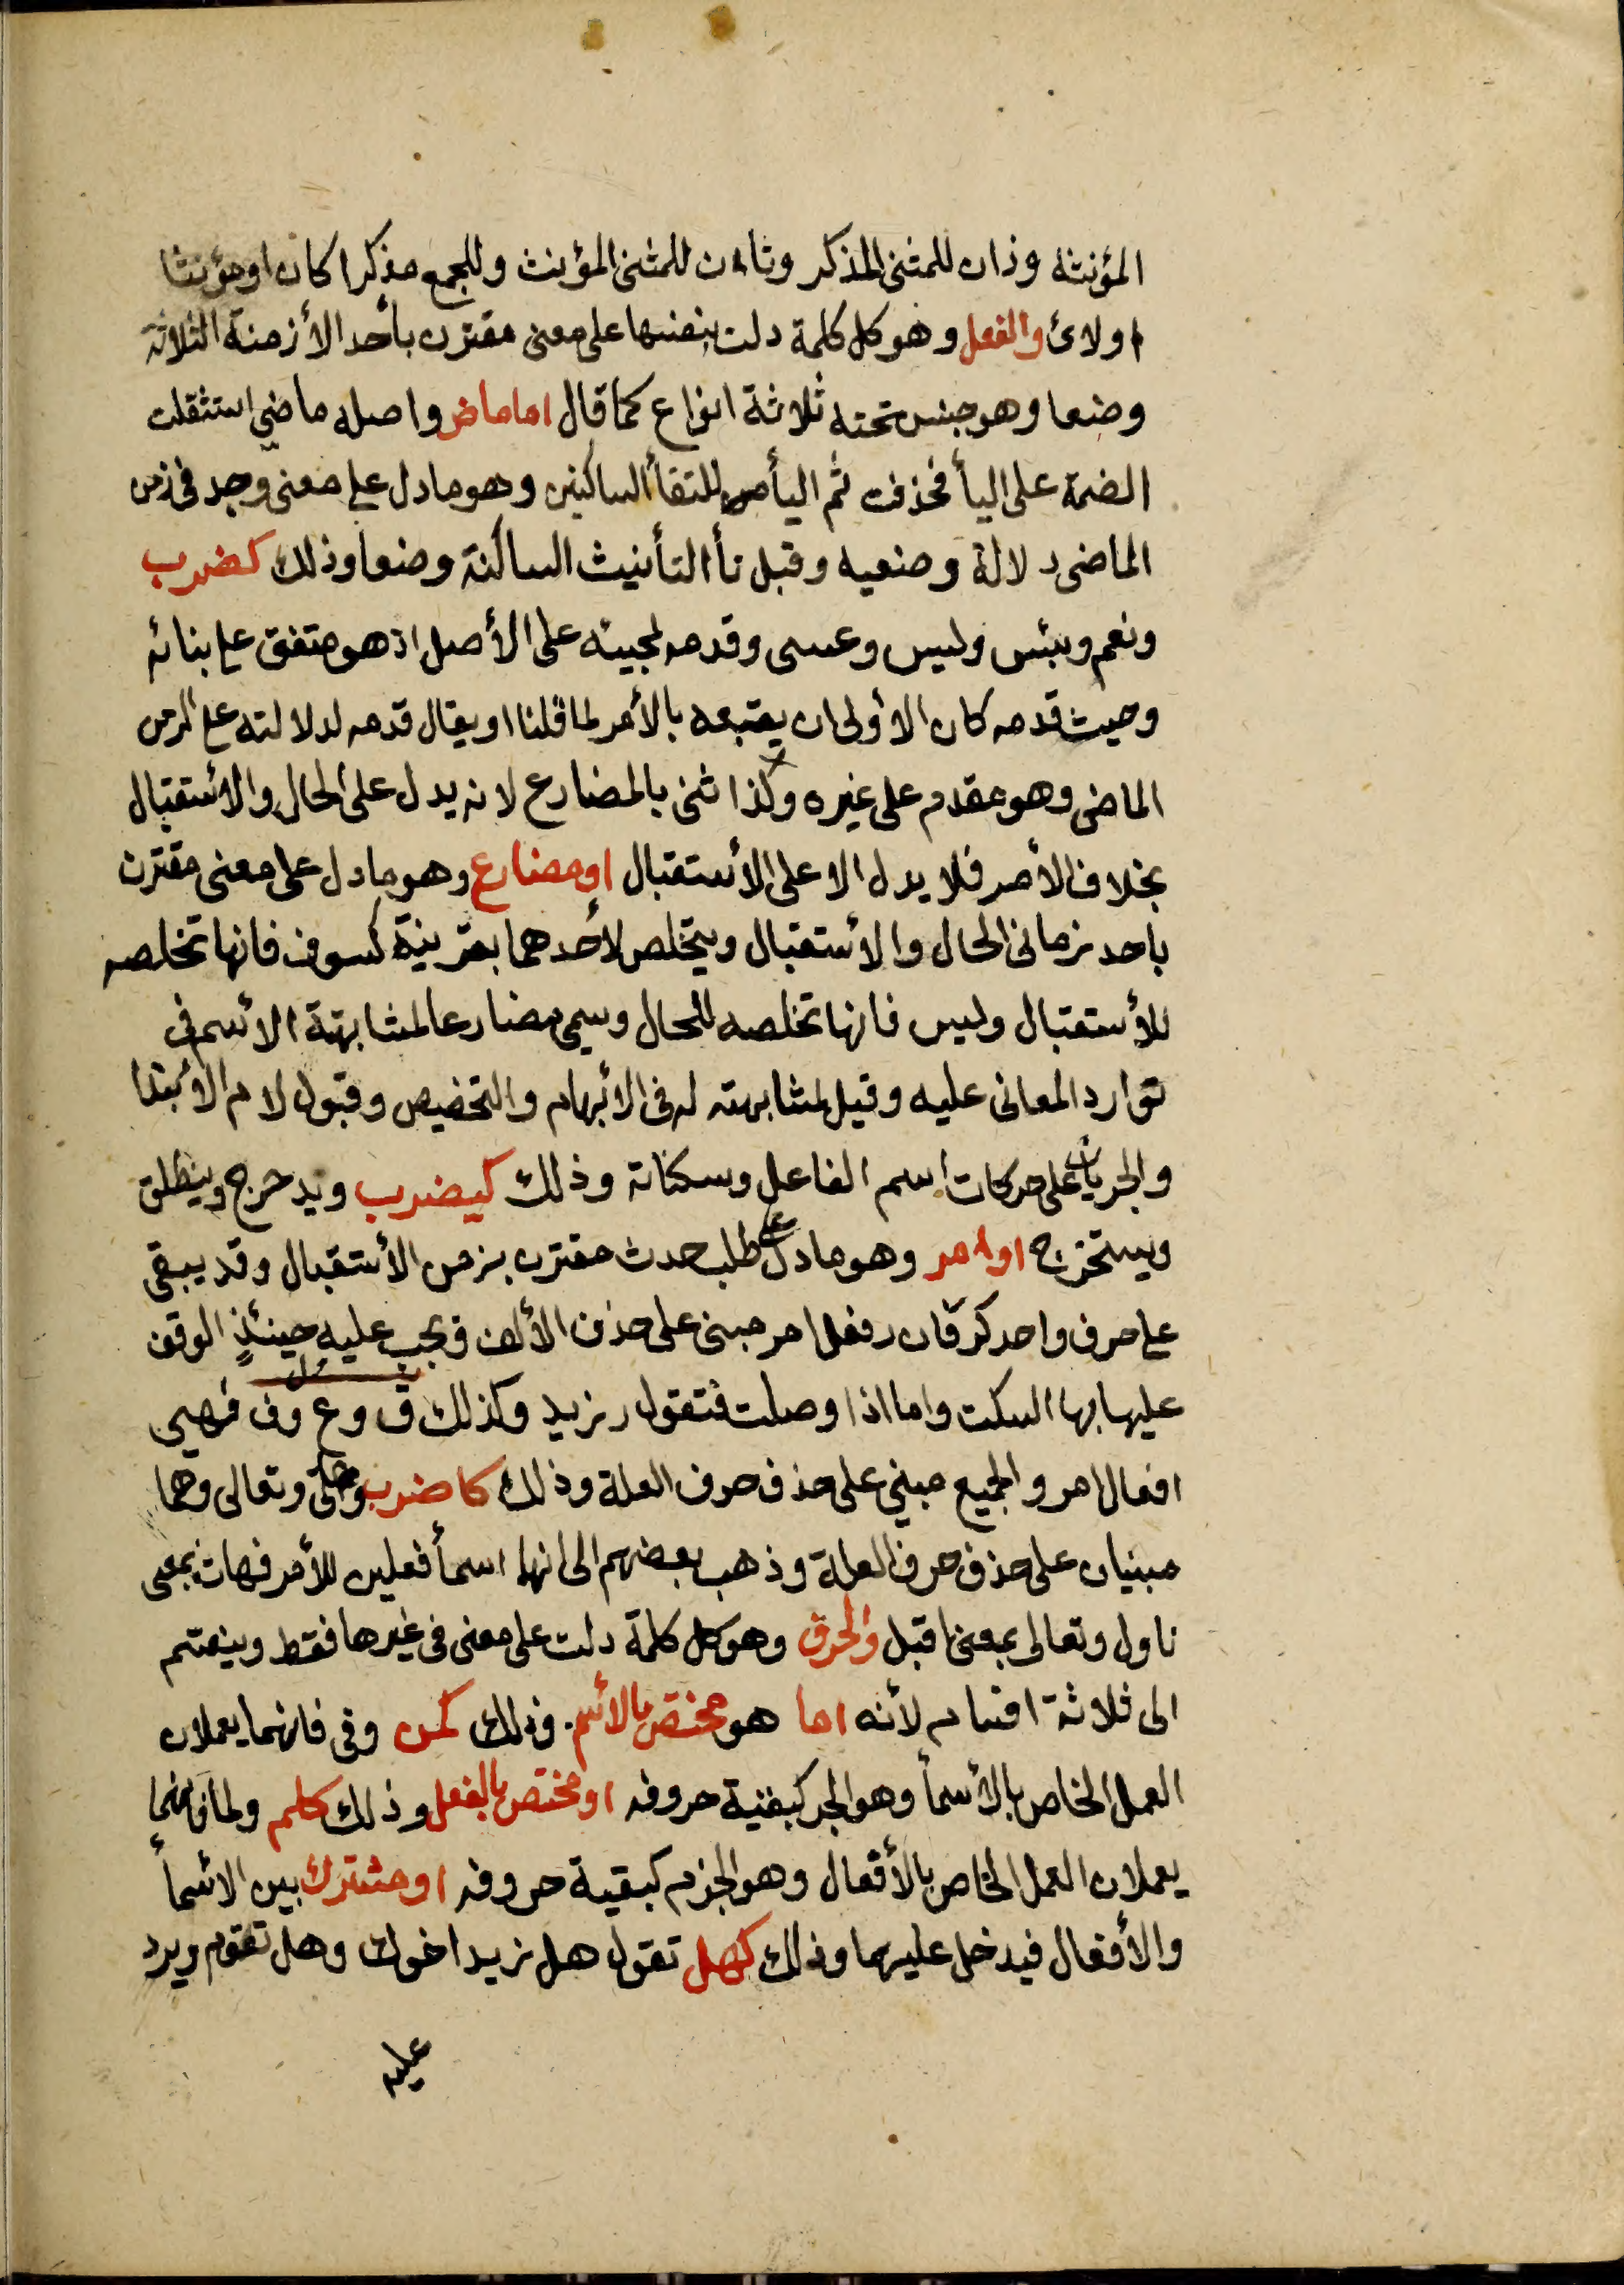 المؤنثة وذان للمثنى المذكر وتان للمثنى المؤنث وللجمع مذكرا كان او مؤنثا
اولائ والفعل وهو كل كلمة دلت بنفسها على معنى مقترن بأحد الأزمنة الثلاثة
وضعا وهو جنس تحته ثلاثة انواع كما قال اما ماض واصله ماضي استثقلت
الضمة على اليأ فحذفت ثم اليأ للتقأ الساكنين وهو ما دل على معنى وجد في زمن
الماضي دلالة وضعيه وقبل تأ التأنيث الساكنة وضعا وذلك كضرب
ونعم وبئس وليس وعسى وقدمه لمجيئه على الأصل اذ هو متفق على بنائه
وحيث قدمه كان الاولى ان يعقبه بالأمر لما قلنا او يقال قدمه لدلالته على الزمن
الماضي وهو مقدم على غيره وكذا ثنى بالمضارع لانه يدل على الحال والاستقبال
بخلاف الأمر فلا يدل الا على الأستقبال او مضارع وهو ما دل على معنى مقترن
باحد زماني الحال والأستقبال ويتخلص لأحدهما بقرينة كسوف فانها تخلصه
للأستقبال وليس فانها تخلصه للحال وسمي مضارعا لمشابهة الأسم في
توارد المعاني عليه وقيل لمشابهته له في الأبهام والتخصيص وقبول لام الأبتدا
والجريان على حركات اسم الفاعل وسكناته وذلك كيضرب ويدحرج وينطلق
ويستخرج او امر وهو ما دل على طلب حدث مقترن بزمن الأستقبال وقد يبقى
على حرف واحد كر فان ر فعل امر مبنى على حذف الألف ويجب عليه حينئذ الوقف
عليها بها السكت واما اذا وصلت فتقول ر زيد وكذلك ق وع وف فهي
افعال امر والجميع مبني على حذف حرف العلة وذلك كاضرب وتعالى وهما
مبنيان على حذف حرف العلة وذهب بعضهم الى انها اسمأ فعلين للأمر فهات بمعنى
ناول وتعالى بمعنى اقبل والحرف وهو كل كلمة دلت على معنى في غيرها فقط وينقسم
الى ثلاثة اقسام لأنه اما هو مختص بالأسم. وذلك كمن وفي فانهما يعملان
العمل الخاص بالأسمأ وهو الجر كبقية حروفه او مختص بالفعل وذلك كلم ولما فانهما
يعملان العمل الخاص بالأفعال وهو الجزم كبقية حروفه او مشترك بين الاسمأ
والأفعال فيدخل عليهما وذلك كهل تقول هل زيد اخوك وهل تقوم ويرد
عليه